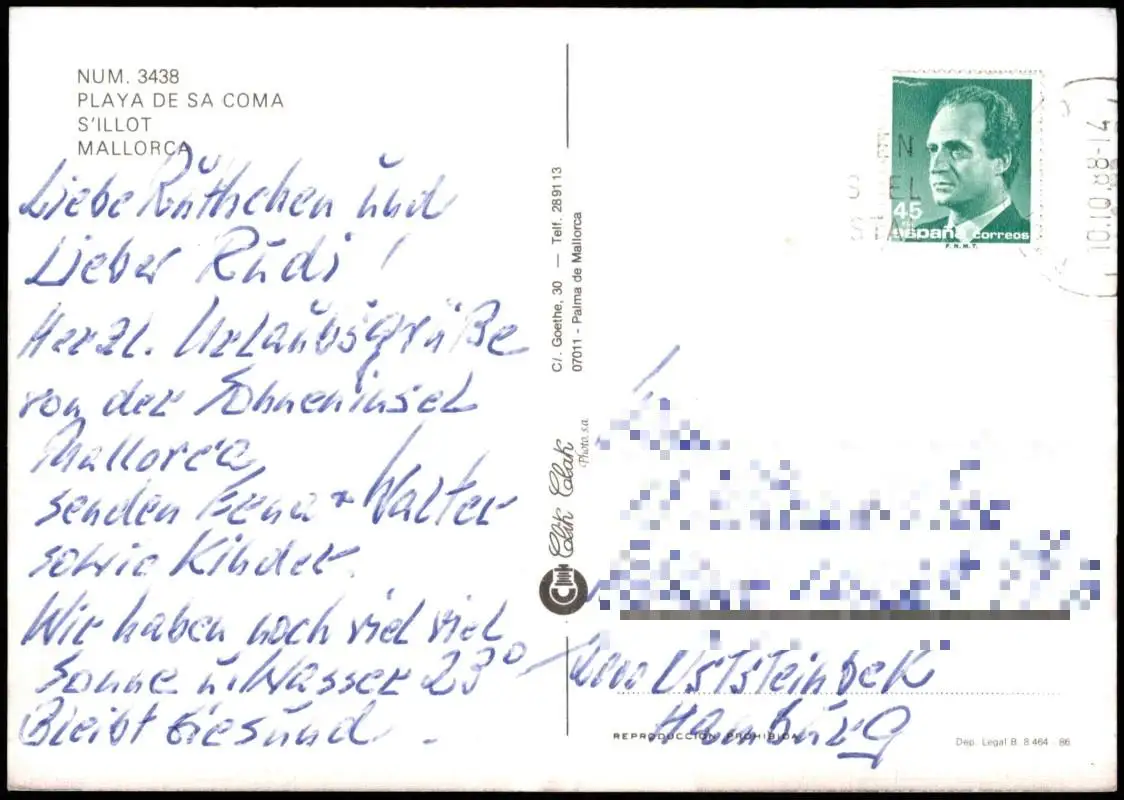 NUM. 3438
PLAYA DE SA COMA
S'ILLOT
MALLORCA
Liebe Rüthchen und
Lieber Rudi!
Herzl. Urlaubsgrüße
von der Sonneninsel
Mallorca
senden + Walter
sowie Kinder.
Wir haben noch viel viel
Sonne u. Wasser 23°
Bleibt Gesund.
C/. Goethe, 30 — Telf. 289113
07011 - Palma de Mallorca
Clik Clak
Photo, s.a.
45
españa correos
F.N.M.T.
10.10.88-14
Hamburg
REPRODUCCION PROHIBIDA
Dep. Legal B. 8464 - 86